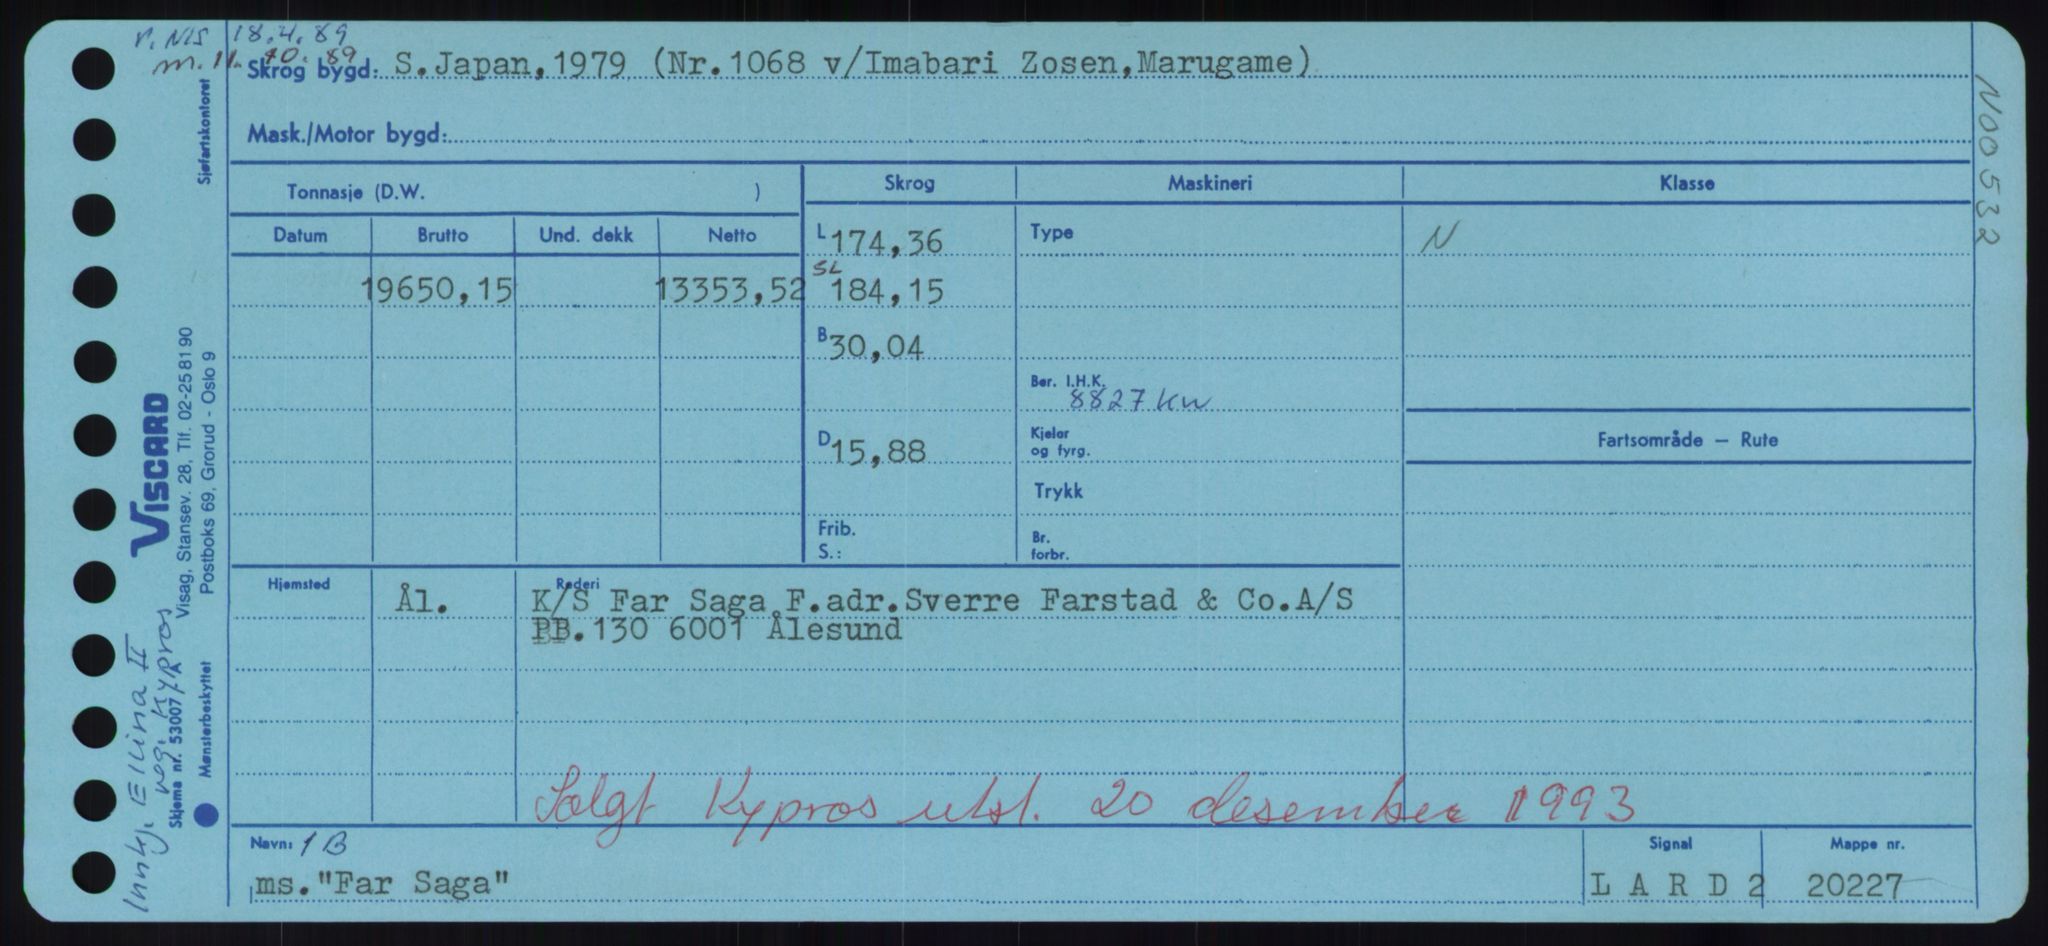 r. NIS 18.4.89
m. 11. 10. 89
Skrog bygd: S.Japan,1979 (Nr.1068 v/Imabari Zosen,Marugame)
Mask./Motor bygd:
Tonnasje (D.W. )
Datum Brutto Und. dekk Netto
19650,15 13353,52
Skrog Maskineri Klasse
L 174,36 Type N
SL 184,15
B 30,04
Ber. I.H.K.
8827 kw
D 15,88
Kjeler
og fyrg.
Fartsområde — Rute
Trykk
Frib.
S.:
Br.
forbr.
Hjemsted Rederi
Ål. K/S Far Saga F.adr.Sverre Farstad & Co.A/S
PB.130 6001 Ålesund
Solgt Kypros utsl. 20 desember 1993
Navn: 1B Signal Mappe nr.
ms."Far Saga" L A R D 2 20227
N00532
Sjøfartskontoret
VISCARD
Visag, Stansev. 28, Tlf. 02-25 81 90
Postboks 69, Grorud - Oslo 9
Skjema nr. 53007/A
Mønsterbeskyttet
Innkj. Ellina II
reg. Kypros